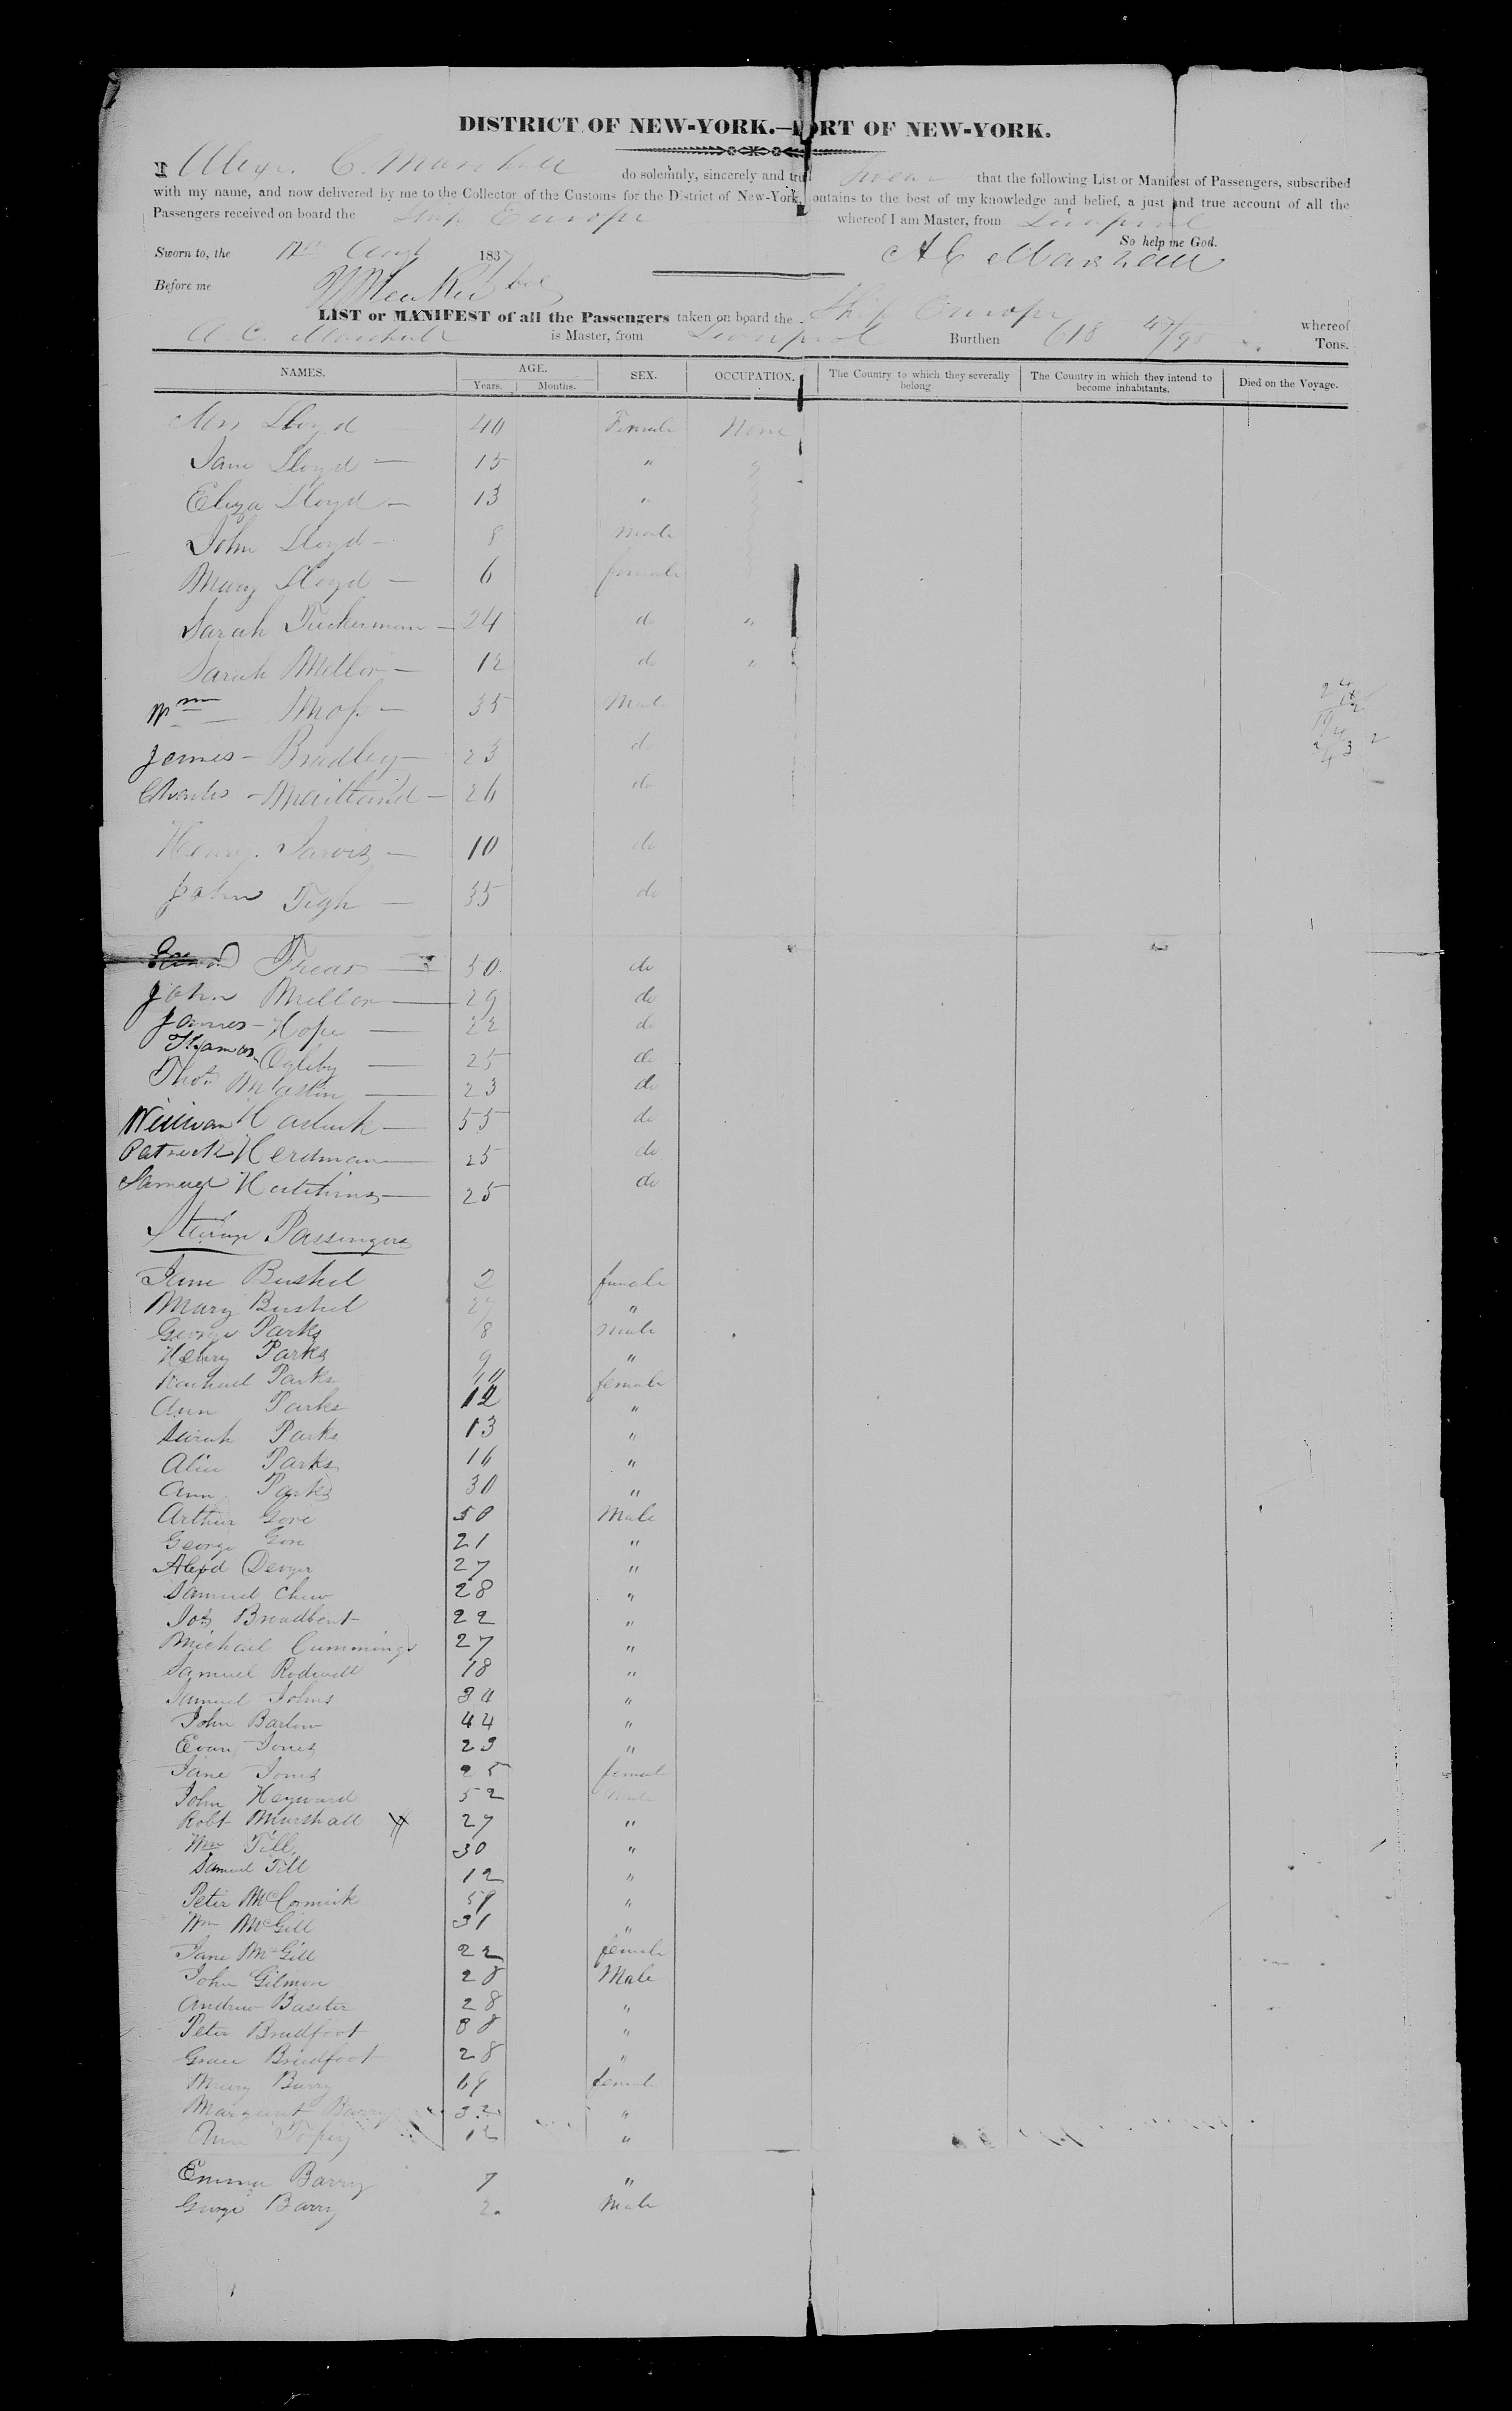 DISTRICT OF NEW-YORK.—PORT OF NEW-YORK.
I Alexr. C. Marshall do solemnly, sincerely and truly swear that the following List or Manifest of Passengers, subscribed
with my name, and now delivered by me to the Collector of the Customs for the District of New-York, contains to the best of my knowledge and belief, a just and true account of all the
Passengers received on board the Ship Europe whereof I am Master, from Liverpool
So help me God.
Sworn to, the 1837 A C Marshall
Before me
LIST or MANIFEST of all the Passengers taken on board the Ship Europe whereof
A. C. Marshall is Master, from Liverpool Burthen 618 47/95 Tons.
NAMES. AGE. Years. Months. SEX. OCCUPATION. The Country to which they severally belong. The Country in which they intend to become inhabitants. Died on the Voyage.
Mrs Lloyd 40 Female None
Jane Lloyd — 15 "
Eliza Lloyd — 13 "
John Lloyd — 8 Male
Mary Lloyd — 6 female
Sarah Tuckerman — 24 do "
Sarah Mellor — 12 do "
Wm — Moss — 35 Male
James — Bradley — 23 do
Charles — Maitland — 26 do
Henry Jarvis — 10 do
John Tigh — 35 do
Frear — 50 do
John Mellor — 29 do
James — Hope — 22 do
Ogleby — 25 do
Thos — 23 do
William — 55 do
Patrick Herdman — 25 do
Samuel Hutchins — 25 do
Steerage Passengers
Jane Bushel 2 female
Mary Bushel "
George Parks 8 male
Henry Parks 9 "
Rachael Parks female
Ann Parks 12 "
Sarah Parks 13 "
Alice Parks 16 "
Ann Parks 30 "
Arthur Gore 50 Male
George Gore 21 "
27 "
Samuel Chew 28 "
Jos Broadbent 22 "
Michael Cummings 27 "
Samuel Rodwell 18 "
Samuel Johns "
John Barlow 44 "
Evan Jones 23 "
Jane Jones 25 female
John Hayward 52 Male
Robt Marshall 27 "
Wm Till 30 "
Samuel Till 12 "
Peter McCormick "
Wm McGill 31 "
Jane McGill 22 female
John Gilmon 28 Male
Andrew Baxter 28 "
Peter Bradfoot "
Grace Bradfoot 28 "
Mary Barry female
Margaret Barry 32 "
Ann 12 "
Emma Barry 7 "
George Barry 2 Male